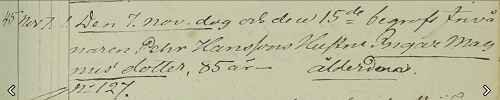 45 Nov. 7. Den 7. nov. dog och den 15de begrofs Invå
naren Pehr Hanssons Hustru Ingar Mag
nus dotter, 85 år — ålderdom.
No 127.